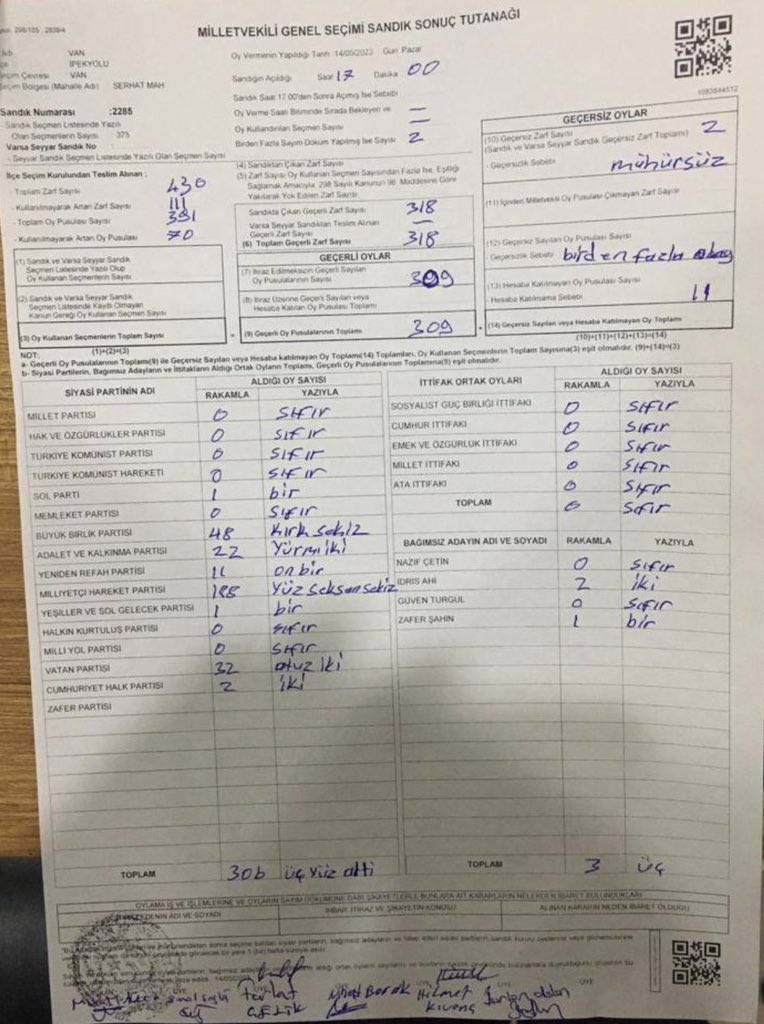 MİLLETVEKİLİ GENEL SEÇİMİ SANDIK SONUÇ TUTANAĞI
VAN
İPEKYOLU
Seçim Çevresi VAN
Seçim Bölgesi (Mahalle Adı) SERHAT MAH
Sandık Numarası :2285
- Sandık Seçmen Listesinde Yazılı
Olan Seçmenlerin Sayısı 375
Varsa Seyyar Sandık No
- Seyyar Sandık Seçmen Listesinde Yazılı Olan Seçmen Sayısı
İlçe Seçim Kurulundan Teslim Alınan ;
- Toplam Zarf Sayısı 430
- Kullanılmayarak Artan Zarf Sayısı 111
- Toplam Oy Pusulası Sayısı
- Kullanılmayarak Artan Oy Pusulası 70
Oy Vermenin Yapıldığı Tarih 14/05/2023 Gün Pazar
Sandığın Açıldığı Saat 17 Dakika 00
Sandık Saat 17:00'den Sonra Açılmış İse Sebebi
Oy Verme Saati Bitiminde Sırada Bekleyen ve
Oy Kullandırılan Seçmen Sayısı
Birden Fazla Sayım Döküm Yapılmış İse Sayısı 2
(4) Sandıktan Çıkan Zarf Sayısı
(5) Zarf Sayısı Oy Kullanan Seçmen Sayısından Fazla İse, Eşitliği
Sağlamak Amacıyla, 298 Sayılı Kanunun 98. Maddesine Göre
Yakılarak Yok Edilen Zarf Sayısı
Sandıkta Çıkan Geçerli Zarf Sayısı 318
Varsa Seyyar Sandıktan Teslim Alınan
Geçerli Zarf Sayısı —
(6) Toplam Geçerli Zarf Sayısı 318
1083844512
GEÇERSİZ OYLAR
(10) Geçersiz Zarf Sayısı
(Sandık ve Varsa Seyyar Sandık Geçersiz Zarf Toplamı) 2
- Geçersizlik Sebebi mühürsüz
(11) İçinden Milletvekili Oy Pusulası Çıkmayan Zarf Sayısı
(12) Geçersiz Sayılan Oy Pusulası Sayısı
Geçersizlik Sebebi birden fazla
(13) Hesaba Katılmayan Oy Pusulası Sayısı
- Hesaba Katılmama Sebebi 11
(14) Geçersiz Sayılan veya Hesaba Katılmayan Oy Toplamı
(10)+(11)+(12)+(13)=(14)
(1) Sandık ve Varsa Seyyar Sandık
Seçmen Listesinde Yazılı Olup
Oy Kullanan Seçmenlerin Sayısı
(2) Sandık ve Varsa Seyyar Sandık
Seçmen Listesinde Kayıtlı Olmayan
Kanun Gereği Oy Kullanan Seçmen Sayısı
(3) Oy Kullanan Seçmenlerin Toplam Sayısı
(1)+(2)=(3)
GEÇERLİ OYLAR
(7) İtiraz Edilmeksizin Geçerli Sayılan
Oy Pusulası Sayısı 309
(8) İtiraz Üzerine Geçerli Sayılan veya
Hesaba Katılan Oy Pusulası Sayısı
(9) Geçerli Oy Pusulalarının Toplamı 309
NOT:
a- Geçerli Oy Pusulalarının Toplamı(9) ile Geçersiz Sayılan veya Hesaba katılmayan Oy Toplamı(14) Toplamları, Oy Kullanan Seçmenlerin Toplam Sayısına(3) eşit olmalıdır. (9)+(14)=(3)
b- Siyasi Partilerin, Bağımsız Adayların ve İttifakların Aldığı Ortak Oyların Toplamı, Geçerli Oy Pusulalarının Toplamına(9) eşit olmalıdır.
SİYASİ PARTİNİN ADI ALDIĞI OY SAYISI
RAKAMLA YAZIYLA
MİLLET PARTİSİ 0 sıfır
HAK VE ÖZGÜRLÜKLER PARTİSİ 0 sıfır
TÜRKİYE KOMÜNİST PARTİSİ 0 sıfır
TÜRKİYE KOMÜNİST HAREKETİ 0 sıfır
SOL PARTİ 1 bir
MEMLEKET PARTİSİ 0 sıfır
BÜYÜK BİRLİK PARTİSİ 48 kırk sekiz
ADALET VE KALKINMA PARTİSİ 22 yürmi iki
YENİDEN REFAH PARTİSİ 11 on bir
MİLLİYETÇİ HAREKET PARTİSİ 188 yüz seksen sekiz
YEŞİLLER VE SOL GELECEK PARTİSİ 1 bir
HALKIN KURTULUŞ PARTİSİ 0 sıfır
MİLLİ YOL PARTİSİ 0 sıfır
VATAN PARTİSİ 32 otuz iki
CUMHURİYET HALK PARTİSİ 2 iki
ZAFER PARTİSİ
TOPLAM 306 üç yüz altı
İTTİFAK ORTAK OYLARI ALDIĞI OY SAYISI
RAKAMLA YAZIYLA
SOSYALİST GÜÇ BİRLİĞİ İTTİFAKI 0 sıfır
CUMHUR İTTİFAKI 0 sıfır
EMEK VE ÖZGÜRLÜK İTTİFAKI 0 sıfır
MİLLET İTTİFAKI 0 sıfır
ATA İTTİFAKI 0 sıfır
TOPLAM 0 sıfır
BAĞIMSIZ ADAYIN ADI VE SOYADI RAKAMLA YAZIYLA
NAZİF ÇETİN 0 sıfır
İDRİS AHİ 2 iki
GÜVEN TURGUL 0 sıfır
ZAFER ŞAHİN 1 bir
TOPLAM 3 üç
OYLAMA İŞ VE İŞLEMLERİNE VE OYLARIN SAYIM DÖKÜMÜNE DAİR ŞİKAYETLERLE BUNLARA AİT KARARLARIN NELERDEN İBARET BULUNDUKLARI
ADI VE SOYADI İHBAR, İTİRAZ VE ŞİKAYETİN KONUSU ALINAN KARARIN NEDEN İBARET OLDUĞU
ÜYE
Ferhat
ÇELİK
Hikmet